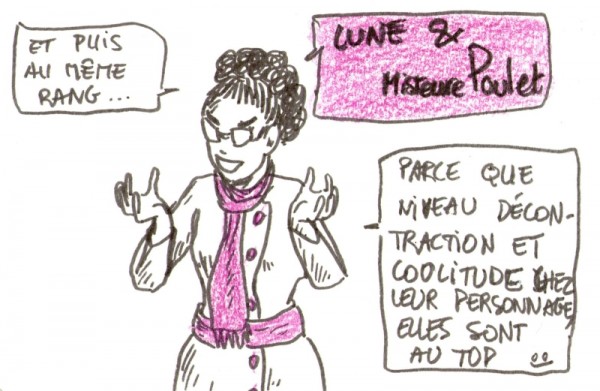 ET PUIS
AU MÊME
RANG...
LUNE &
Misteure Poulet
PARCE QUE
NIVEAU DÉCON-
TRACTION ET
COOLITUDE CHEZ
LEUR PERSONNAGE,
ELLES SONT
AU TOP